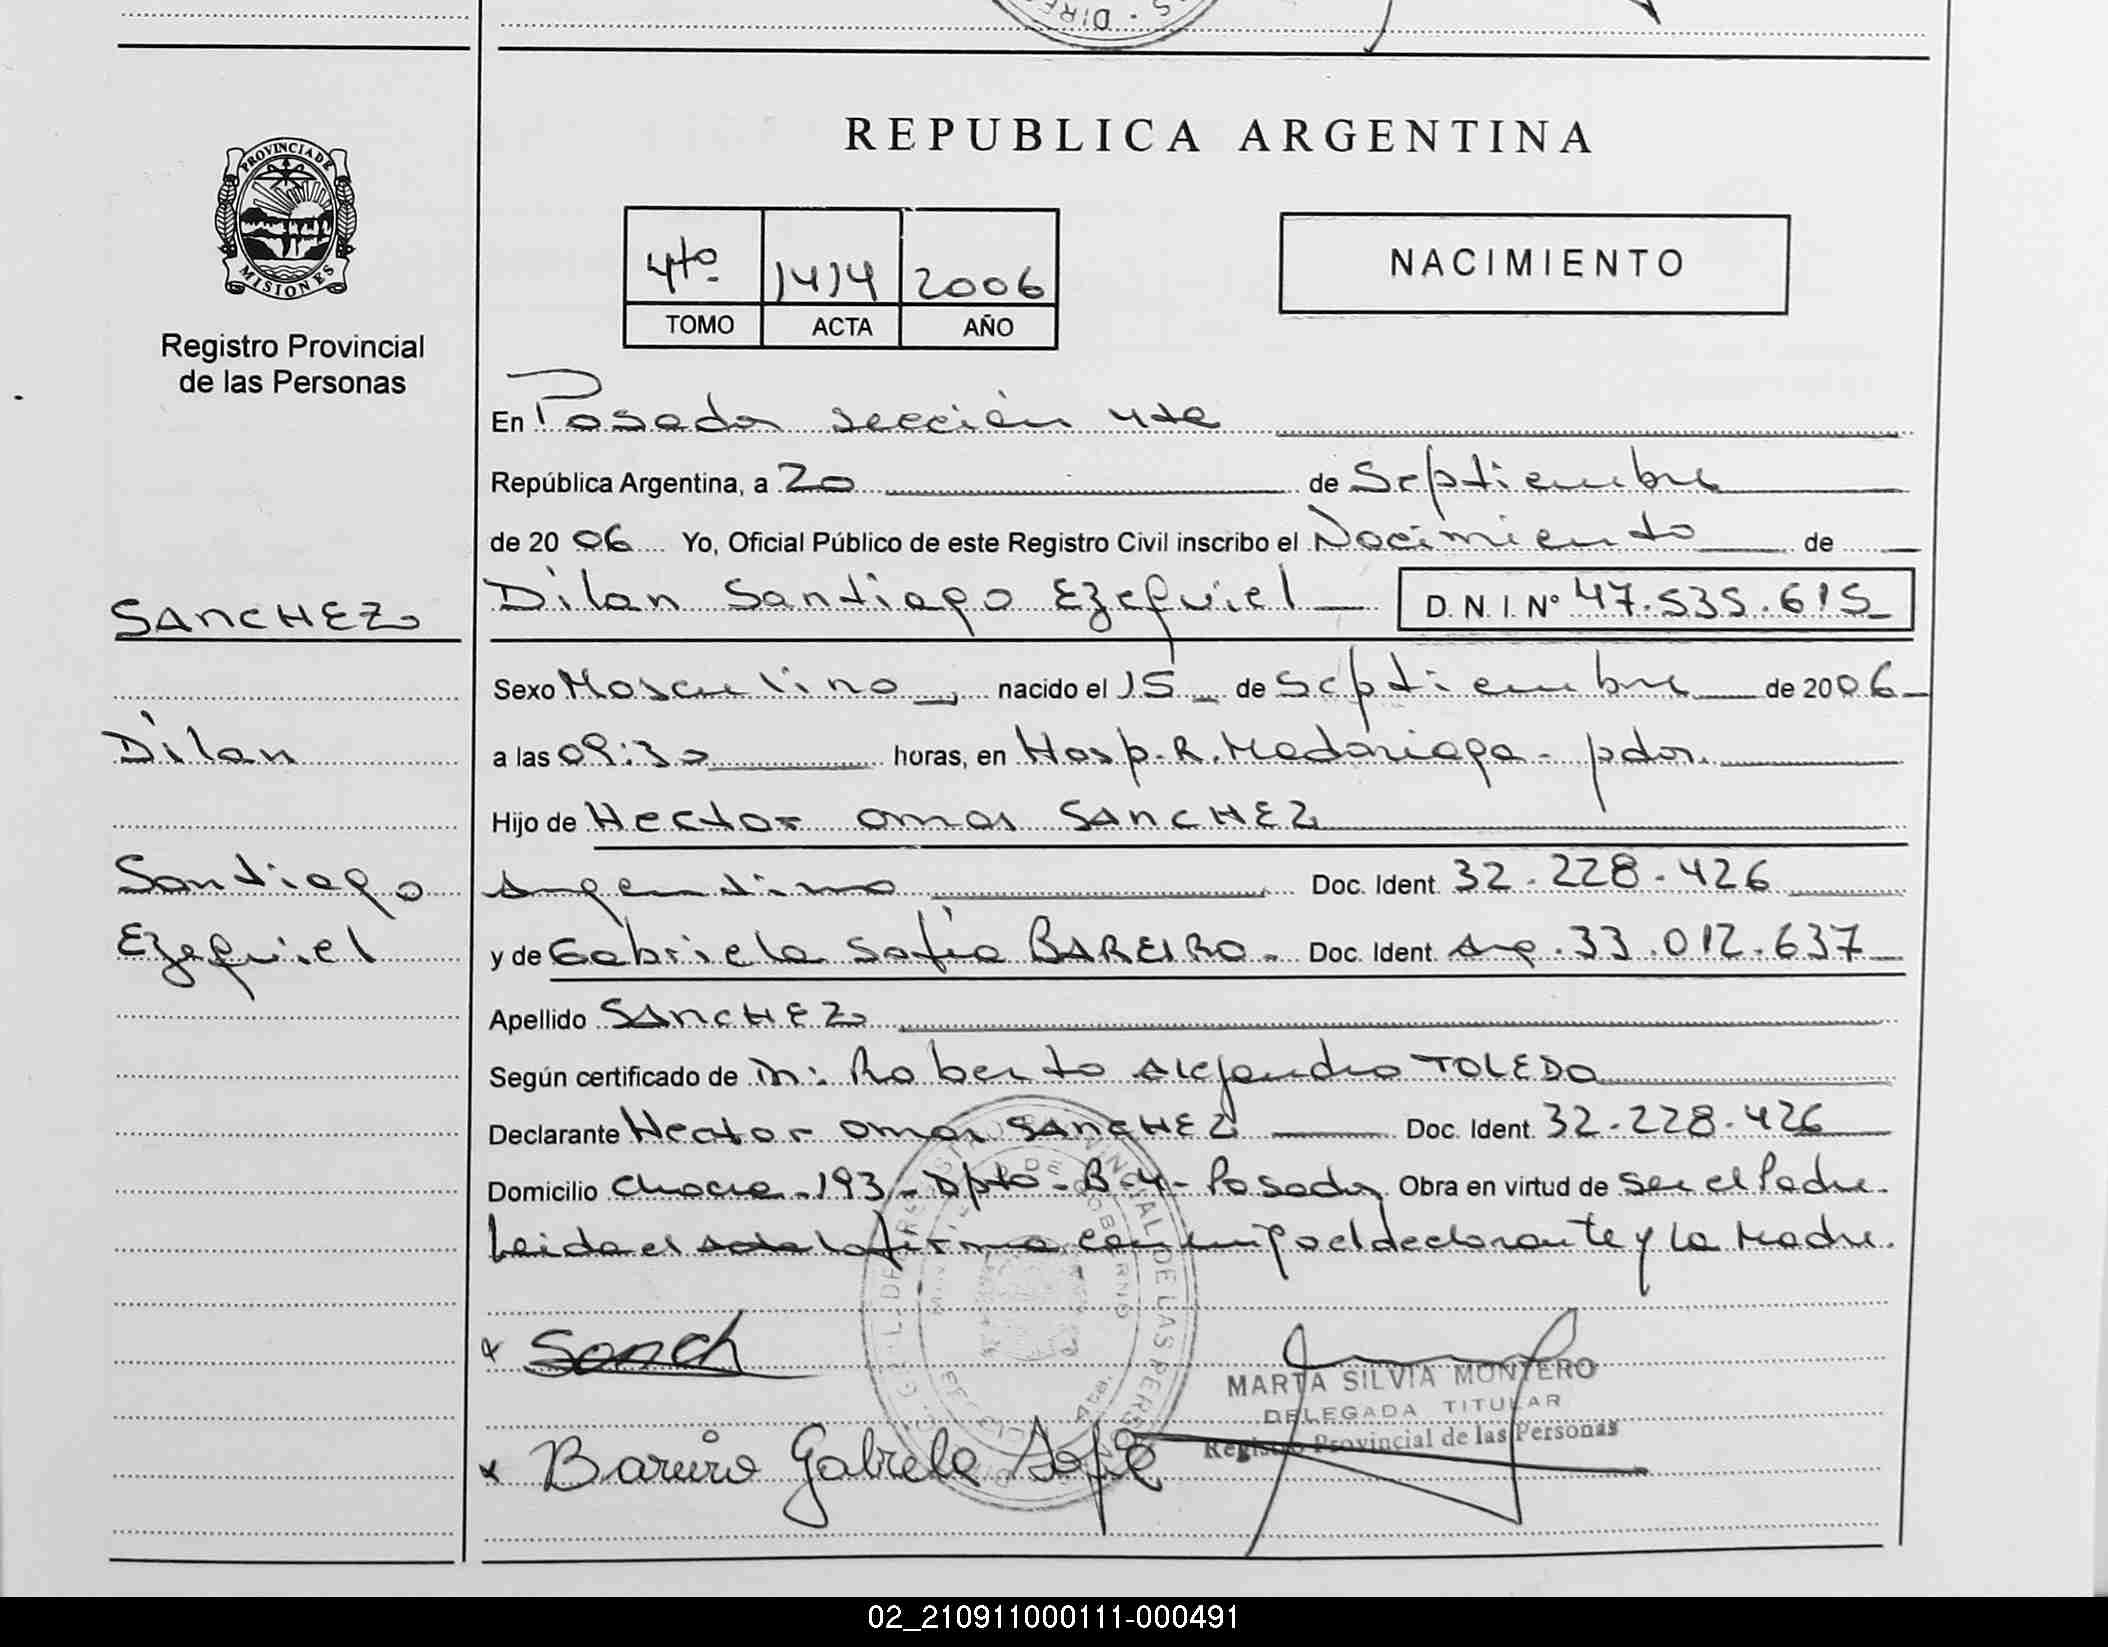 PROVINCIA DE
MISIONES
Registro Provincial
de las Personas
SANCHEZ
Dilan
Santiago
Ezequiel
REPUBLICA ARGENTINA
4to. 1414 2006
TOMO ACTA AÑO
NACIMIENTO
En Posadas sección 4ta
República Argentina, a 20 de Septiembre
de 2006 Yo, Oficial Público de este Registro Civil inscribo el Nacimiento de
Dilan Santiago Ezequiel D.N.I. N° 47.535.615
Sexo Masculino, nacido el 15 de Septiembre de 2006
a las 09:30 horas, en Hosp. R. Madariaga - pdas.
Hijo de Hector Omar SANCHEZ
Argentino Doc. Ident. 32.228.426
y de Gabriela Sofia BAREIRO. Doc. Ident. Arg. 33.012.637
Apellido SANCHEZ
Según certificado de Dr: Roberto Alejandro TOLEDO
Declarante Hector Omar SANCHEZ Doc. Ident. 32.228.426
Domicilio Chacra - 193 - Dpto - B-4 - Posadas Obra en virtud de ser el Padre.
Leida el acta la firma conmigo el declarante y la Madre.
x Sanch
MARTA SILVIA MONTERO
DELEGADA TITULAR
Registro Provincial de las Personas
x Bareiro Gabriela Sofia
02_210911000111-000491